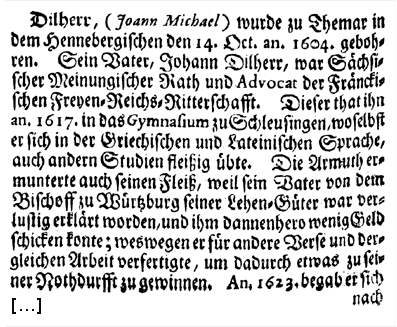 Dilherr, (Joann Michael) wurde zu Themar in
dem Hennebergischen den 14. Oct. an. 1604. geboh-
ren. Sein Vater, Johann Dilherr, war Sächsi-
scher Meinungischer Rath und Advocat der Fräncki-
schen Freyen-Reichs-Ritterschafft. Dieser that ihn
an. 1617. in das Gymnasium zu Schleusingen, woselbst
er sich in der Griechischen und Lateinischen Sprache,
auch andern Studien fleißig übte. Die Armuth er-
munterte auch seinen Fleiß, weil sein Vater von dem
Bischoff zu Würtzburg seiner Lehen-Güter war ver-
lustig erklärt worden, und ihm dannenhero wenig Geld
schicken konte; weswegen er für andere Verse und der-
gleichen Arbeit verfertigte, um dadurch etwas zu sei-
ner Nothdurfft zu gewinnen. An. 1623. begab er sich
nach
[...]